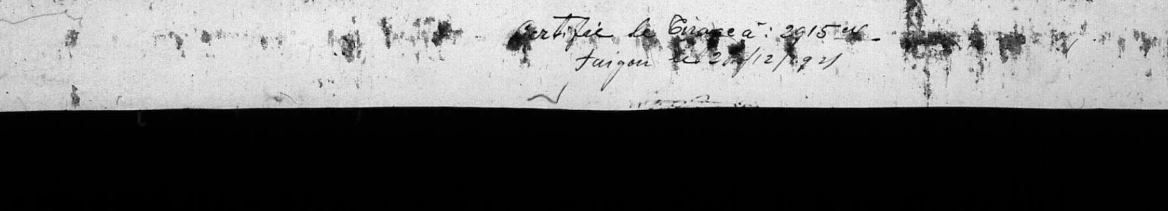 Certifié le Tirage à : 2915 ex.
Saigon le 20/12/1921